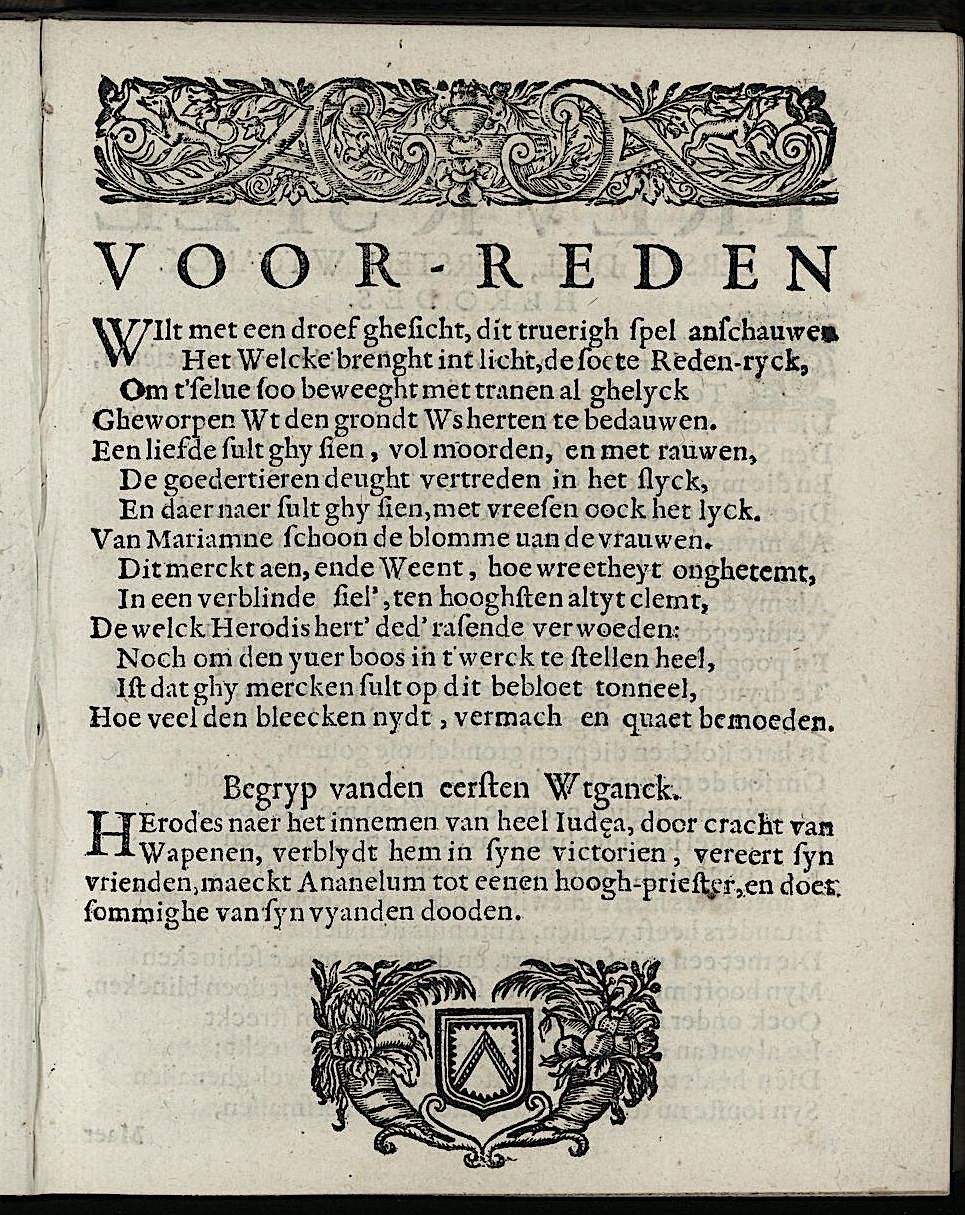 VOOR-REDEN
WIlt met een droef gheſicht, dit truerigh ſpel anſchauwen
Het Welcke brenght int licht, de ſoete Reden-ryck,
Om t'ſelue ſoo beweeght met tranen al ghelyck
Gheworpen Wt den grondt Ws herten te bedauwen.
Een liefde ſult ghy ſien, vol moorden, en met rauwen,
De goedertieren deught vertreden in het ſlyck,
En daer naer ſult ghy ſien, met vreeſen oock het lyck.
Van Mariamne ſchoon de blomme uan de vrauwen.
Dit merckt aen, ende Weent, hoe wreetheyt onghetemt,
In een verblinde ſiel', ten hooghſten altyt clemt,
De welck Herodis hert' ded' raſende verwoeden:
Noch om den yuer boos in t'werck te ſtellen heel,
Iſt dat ghy mercken ſult op dit bebloet tonneel,
Hoe veel den bleecken nydt, vermach en quaet bemoeden.
Begryp vanden eerſten Wtganck.
HErodes naer het innemen van heel Iudęa, door cracht van
Wapenen, verblydt hem in ſyne victorien, vereert ſyn
vrienden, maeckt Ananelum tot eenen hoogh-prieſter, en doet
ſommighe van ſyn vyanden dooden.